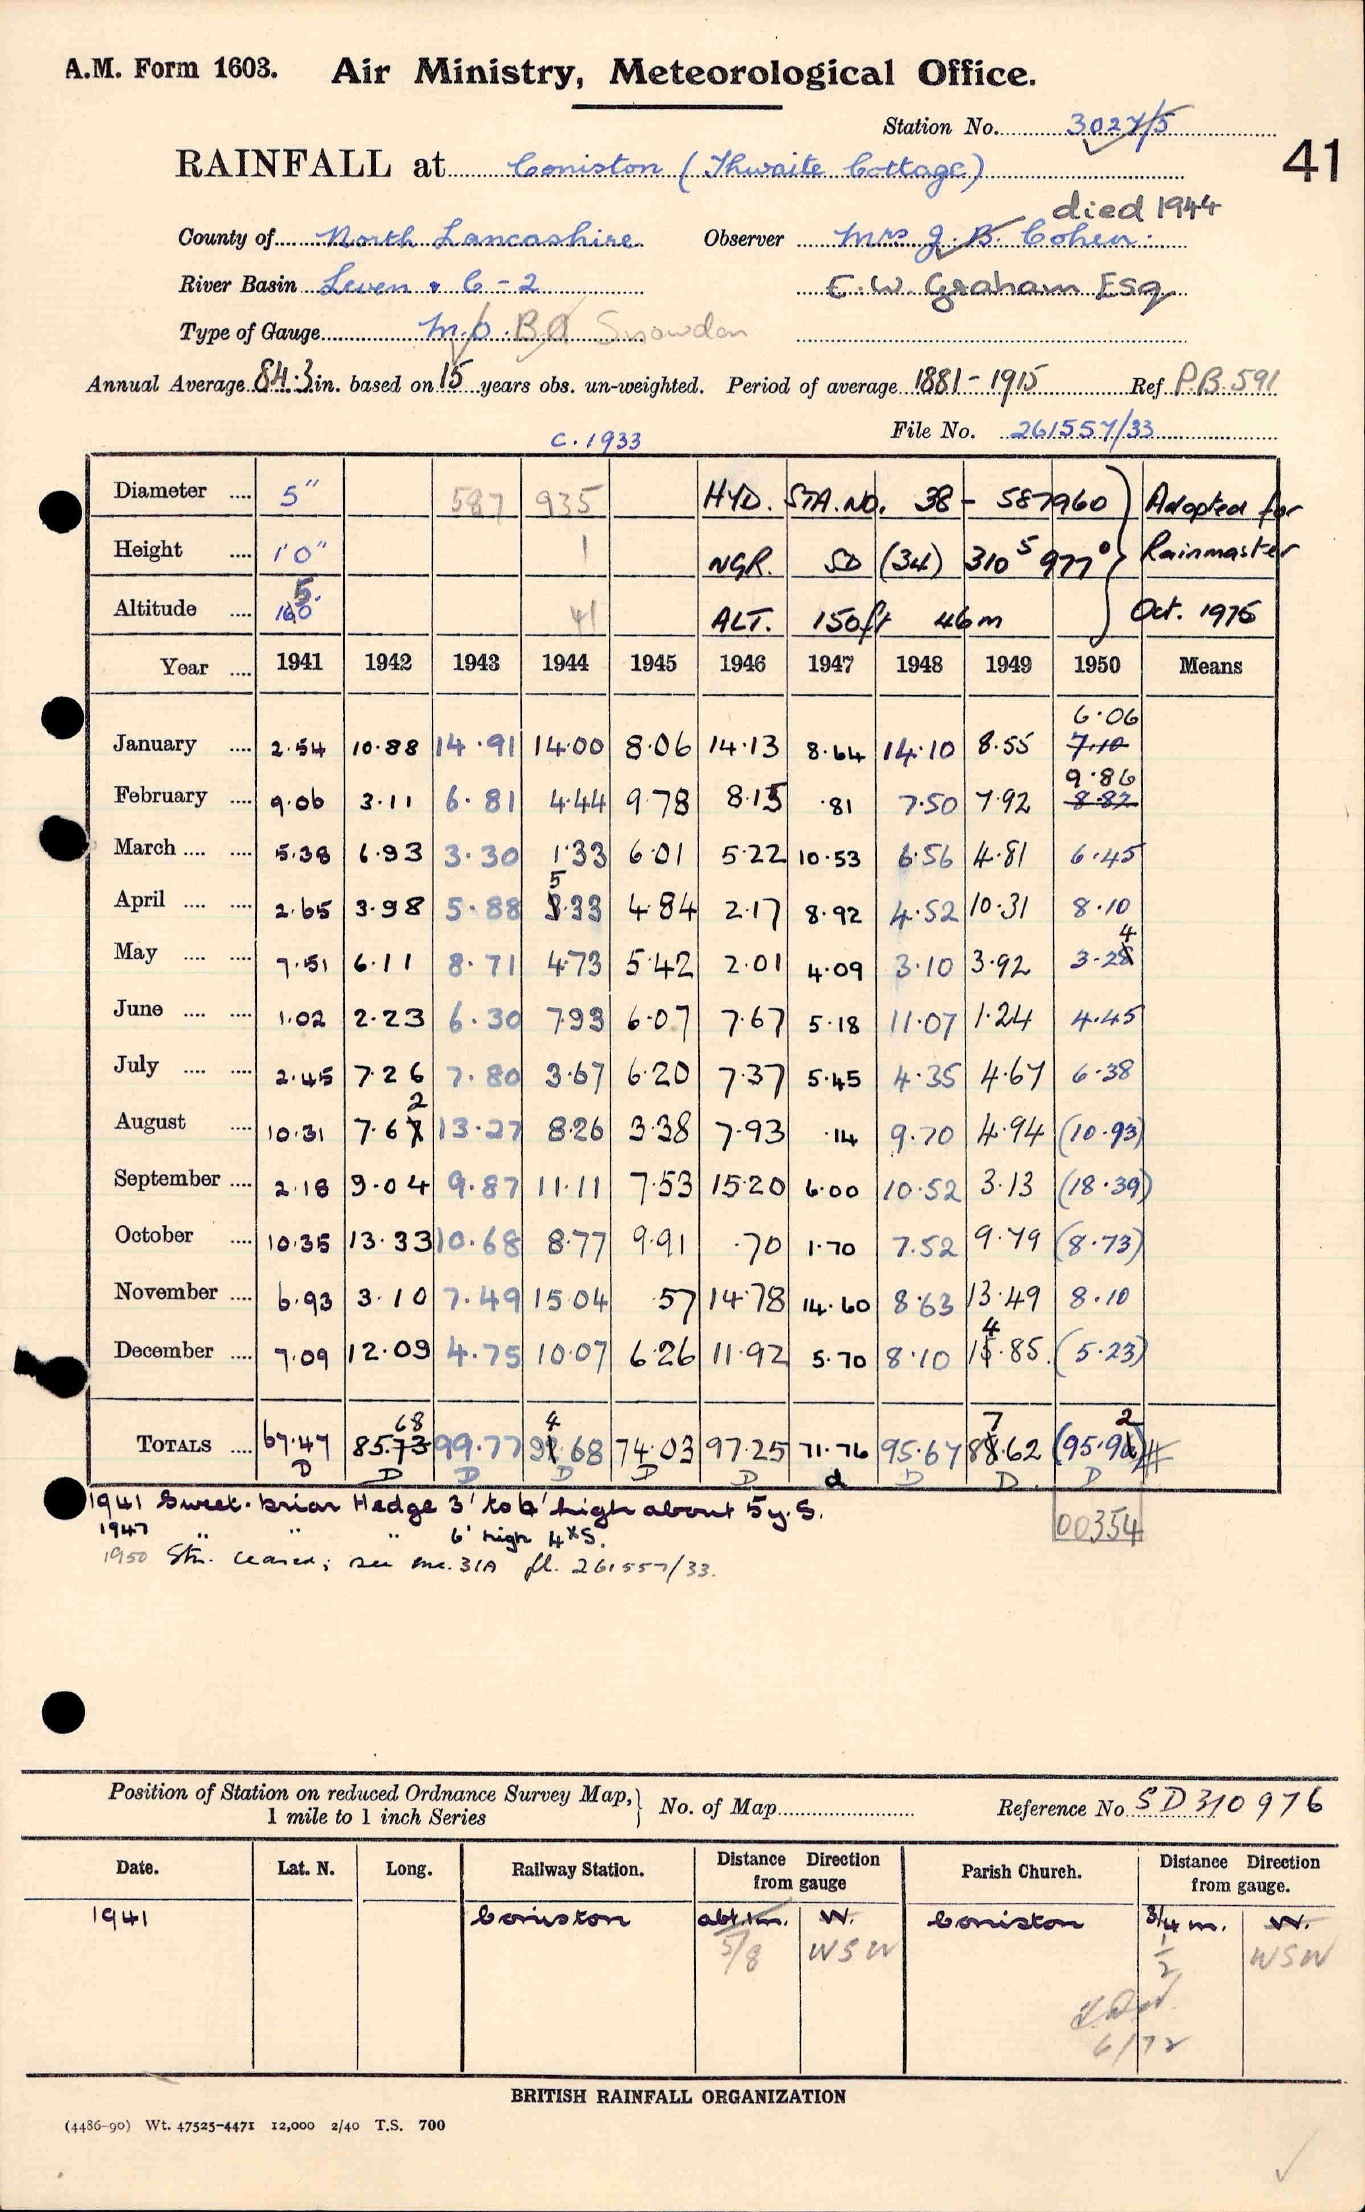 A.M. Form 1603. Air Ministry, Meteorological Office.
Station No. 3027/5
41
RAINFALL at Coniston (Thwaite Cottage)
died 1944
County of North Lancashire Observer Mrs J. B. Cohen.
River Basin Leven & C-2 E.W. Graham Esq
Type of Gauge M.O. Snowdon
Annual Average 84.3 in. based on 15 years obs. un-weighted. Period of average 1881-1915 Ref P.B. 591
File No. 261557/33
C. 1933
Diameter .... 5" 587 935 HYD. STA. NO. 38 - 587960 Adopted for
Height .... 1'0" 1 NGR. SD (34) 310 5 977 0 Rainmaster
Altitude .... 160 5. 41 ALT. 150ft 46m Oct. 1975
Year .... 1941 1942 1943 1944 1945 1946 1947 1948 1949 1950 Means
6.06
January .... 2.54 10.88 14.91 14.00 8.06 14.13 8.64 14.10 8.55 7.10
9.86
February .... 9.06 3.11 6.81 4.44 9.78 8.15 .81 7.50 7.92 8.82
March .... .... 5.38 6.93 3.30 1.33 6.01 5.22 10.53 6.56 4.81 6.45
5
April .... .... 2.65 3.98 5.88 3.33 4.84 2.17 8.92 4.52 10.31 8.10
4
May .... .... 7.51 6.11 8.71 4.73 5.42 2.01 4.09 3.10 3.92 3.28
June .... .... 1.02 2.23 6.30 7.93 6.07 7.67 5.18 11.07 1.24 4.45
July .... .... 2.45 7.26 7.80 3.67 6.20 7.37 5.45 4.35 4.67 6.38
2
August .... 10.31 7.67 13.27 8.26 3.38 7.93 .14 9.70 4.94 (10.93)
September .... 2.18 9.04 9.87 11.11 7.53 15.20 6.00 10.52 3.13 (18.39)
October .... 10.35 13.33 10.68 8.77 9.91 .70 1.70 7.52 9.79 (8.73)
November .... 6.93 3.10 7.49 15.04 .57 14.78 14.60 8.63 13.49 8.10
4
December .... 7.09 12.09 4.75 10.07 6.26 11.92 5.70 8.10 15.85 (5.23)
68 4 7 2
TOTALS .... 67.47 85.73 99.77 92.68 74.03 97.25 71.76 95.67 88.62 (95.96)
D D D D D D d D D. D
1941 Sweet-briar Hedge 3' to 6' high about 5 y. S.
1947 " " " 6' high 4 x S.
00354
1950 Stn. ceased; see enc. 31A fl. 261557/33.
Position of Station on reduced Ordnance Survey Map,
1 mile to 1 inch Series
No. of Map Reference No. SD 310976
Date. Lat. N. Long. Railway Station. Distance Direction from gauge Parish Church. Distance Direction from gauge.
1941 Coniston abt. 1m. W. Coniston 3/4 m. W.
5/8 WSW 1/2 WSW
6/72
BRITISH RAINFALL ORGANIZATION
(4486-90) Wt. 47525-4471 12,000 2/40 T.S. 700